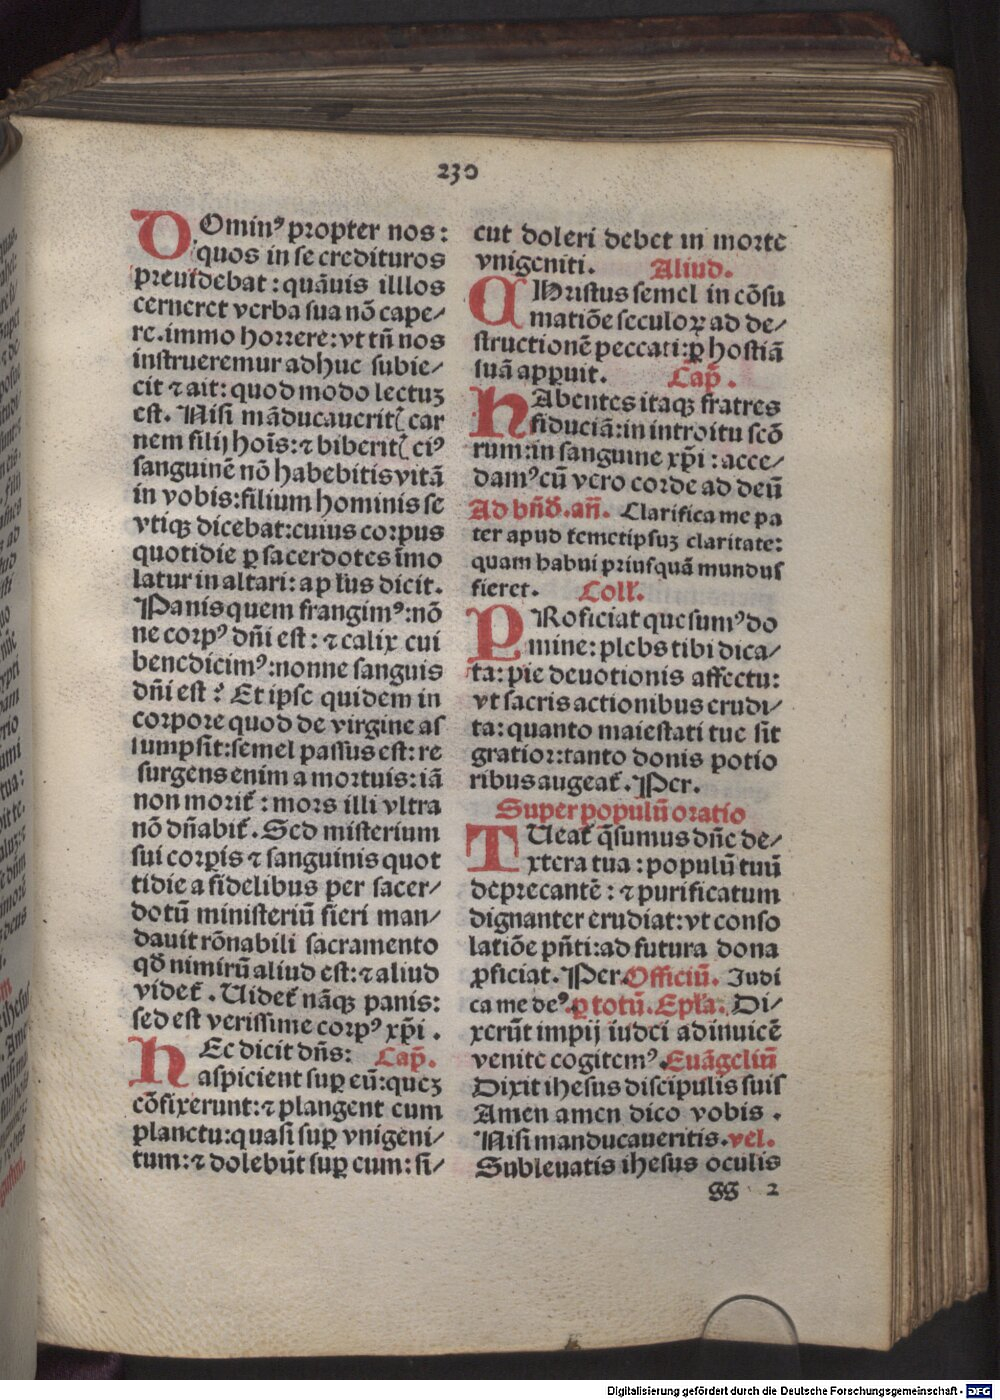 230
DOminꝰ propter nos:
quos in se credituros
preuidebat: quāuis illlos
cerneret verba sua nō cape⸗
re. immo horrere: vt tn̄ nos
instrueremur adhuc subie⸗
cit ⁊ ait: quod modo lectuꝫ
est. Nisi māducauerit⁊ car
nem filij hoīs: ⁊ biberit⁊ eiꝰ
sanguinē nō habebitis vitā
in vobis: filium hominis se
vtiqꝫ dicebat: cuius corpus
quotidie ꝑ sacerdotes īmo
latur in altari: apl̄us dicit.
Panis quem frangimꝰ: nō
ne corpꝰ dn̄i est: ⁊ calix cui
benedicimꝰ: nonne sanguis
dn̄i est? Et ipse quidem in
corpore quod de virgine as
sumpsit: semel passus est: re
surgens enim a mortuis: iā
non morit̄: mors illi vltra
nō dn̄abit̄. Sed misterium
sui corꝑis ⁊ sanguinis quot
tidie a fidelibus per sacer⸗
dotū ministeriū fieri man⸗
dauit rōnabili sacramento
qđ nimirū aliud est: ⁊ aliud
videt̄. Uidet̄ nāqꝫ panis:
sed est verissime corpꝰ xp̄i.
HEc dicit dn̄s: Cap̄.
aspicient suꝑ eū: queꝫ
cōfixerunt: ⁊ plangent eum
planctu: quasi suꝑ vnigeni⸗
tum: ⁊ dolebūt suꝑ eum: si⸗
cut doleri debet in morte
vnigeniti. Aliud.
CHristus semel in cōsu
matiōe seculoꝝ ad de⸗
structionē peccati: ꝑ hostiā
suā apꝑuit. Cap̄.
HAbentes itaqꝫ fratres
fiduciā: in introitu scō
rum: in sanguine xp̄i: acce⸗
damꝰ cū vero corde ad deū
Ad bn̄đ. an̄. Clarifica me pa
ter apud temetipsuꝫ claritate:
quam habui priusquā mundus
fieret. Coll̄.
PRoficiat quesumꝰ do
mine: plebs tibi dica⸗
ta: pie deuotionis affectu:
vt sacris actionibus erudi⸗
ta: quanto maiestati tue sit
gratior: tanto donis potio
ribus augeat̄. Per.
Super populū oratio
TUeat̄ q̄sumus dn̄e de⸗
xtera tua: populū tuū
deprecantē: ⁊ purificatum
dignanter erudiat: vt conso
latiōe pn̄ti: ad futura dona
ꝓficiat. Per. Officiū. Iudi
ca me deꝰ. ꝑ totū. Epl̄a. Di⸗
xerūt impij iudei adinuicē
venite cogitemꝰ. Euāgeliū
Dixit ihesus discipulis suis
Amen amen dico vobis.
Nisi manducaueritis. vel.
Subleuatis ihesus oculis
gg 2
Digitalisierung gefördert durch die Deutsche Forschungsgemeinschaft - DFG